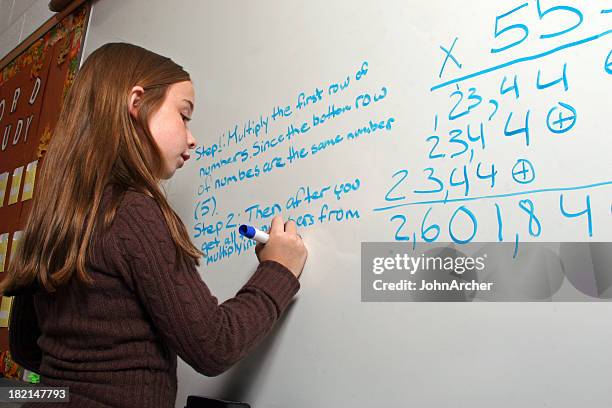 ORD
UDY
Step 1: Multiply the first row of
numbers. Since the bottom row
of numbes are the same number
(5).
Step 2: Then after you
get all numbers from
multiplying
x 55
1,23,44
23,44⊕
2 3,44 ⊕
2,601,84
gettyimages®
JohnArcher
182147793